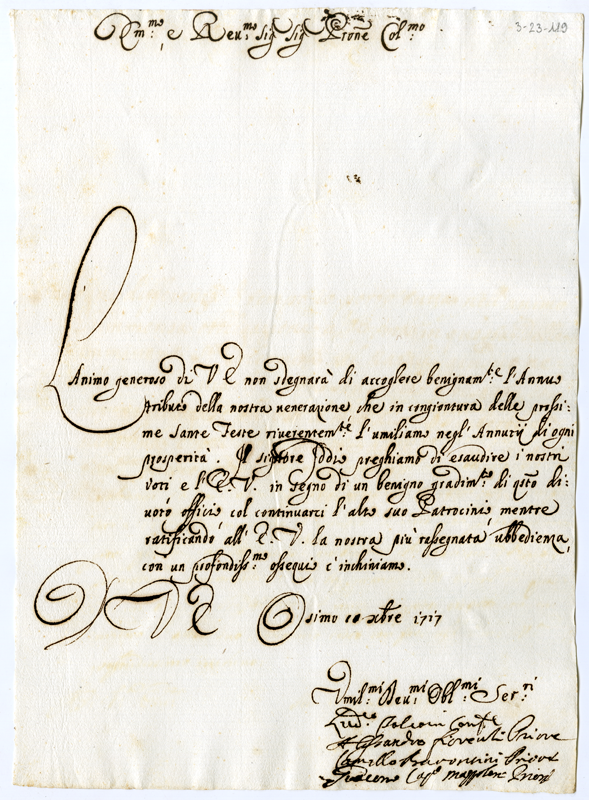 3-23-119
Em:mo e Reu:mo sig sig Prone Col:mo
L'Animo generoso di V E non sdegnarà di accogliere benignam:te l'Annuo
tributo della nostra uenerazione che in congiontura delle prossi-
me Sante Feste riuerentem:te l'umiliamo negl'Annunzij di ogni
prosperità. Il signore Iddio preghiamo di esaudire i nostri
voti e l'E. V. in segno di un benigno gradim:to di q:sto di-
uoto offitio col continuarci l'alto suo Patrocinio, mentre
ratificando all'E. V. la nostra più rassegnata ubbedienza,
con un profondiss:mo ossequio c'inchiniamo.
D V E Osimo 10 xbre 1717
Vmil:mi Deu:mi Obl:mi Ser:ri
Conf:re
Alessandro Fiorenti Priore
Camillo Priore
Giacomo Priore